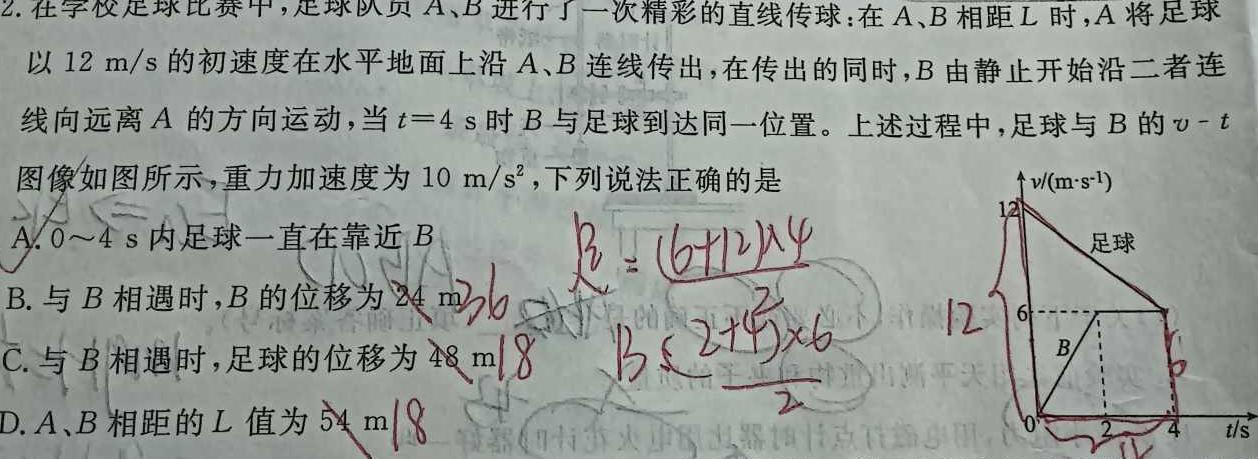 2. 在学校足球比赛中,足球队员 A、B 进行了一次精彩的直线传球:在 A、B 相距 L 时,A 将足球
以 12 m/s 的初速度在水平地面上沿 A、B 连线传出,在传出的同时,B 由静止开始沿二者连
线向远离 A 的方向运动,当 t=4 s 时 B 与足球到达同一位置。上述过程中,足球与 B 的 v-t
图像如图所示,重力加速度为 10 m/s²,下列说法正确的是
A. 0~4 s 内足球一直在靠近 B
B. 与 B 相遇时,B 的位移为 24 m 36
C. 与 B 相遇时,足球的位移为 48 m 18
D. A、B 相距的 L 值为 54 m 18
= (6+12)×4
2
B (2+4)×6
2
v/(m·s⁻¹)
12
足球
12
6
B
6
0
2
4
t/s